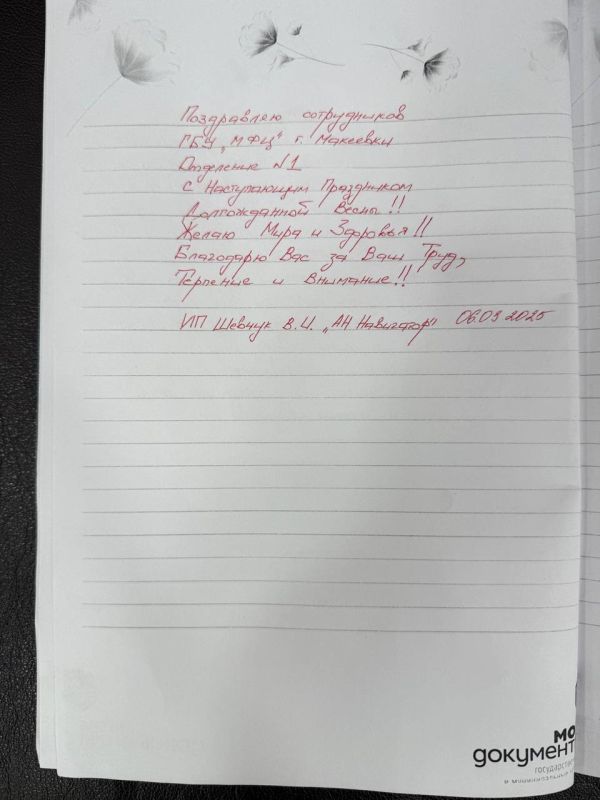 Поздравляю сотрудников
ГБУ „МФЦ" г. Макеевки
Отделение №1
с Наступающим Праздником
Долгожданной Весны!!
Желаю Мира и Здоровья!!
Благодарю Вас за Ваш Труд,
Терпение и Внимание!!
ИП Шевчук В.И. „АН Навигатор" 06.03 2025
мо
документ
государст
и муниципальны